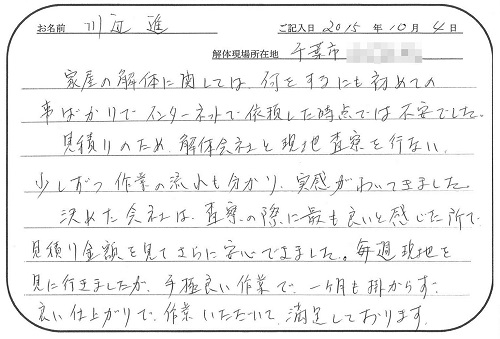 お名前 川辺 進 ご記入日 2015 年 10 月 4 日
解体現場所在地 千葉市
家屋の解体に関しては、何をするにも初めての
事ばかりで インターネットで依頼した時点では不安でした。
見積りのため、解体会社と現地査察を行ない、
少しずつ作業の流れも分かり、実感がわいてきました。
決めた会社は、査察の際に最も良いと感じた所で、
見積り金額を見てさらに安心できました。毎週現地を
見に行きましたが、手極良い作業で、一ヶ月も掛からず、
良い仕上がりで、作業いただいて、満足しております。